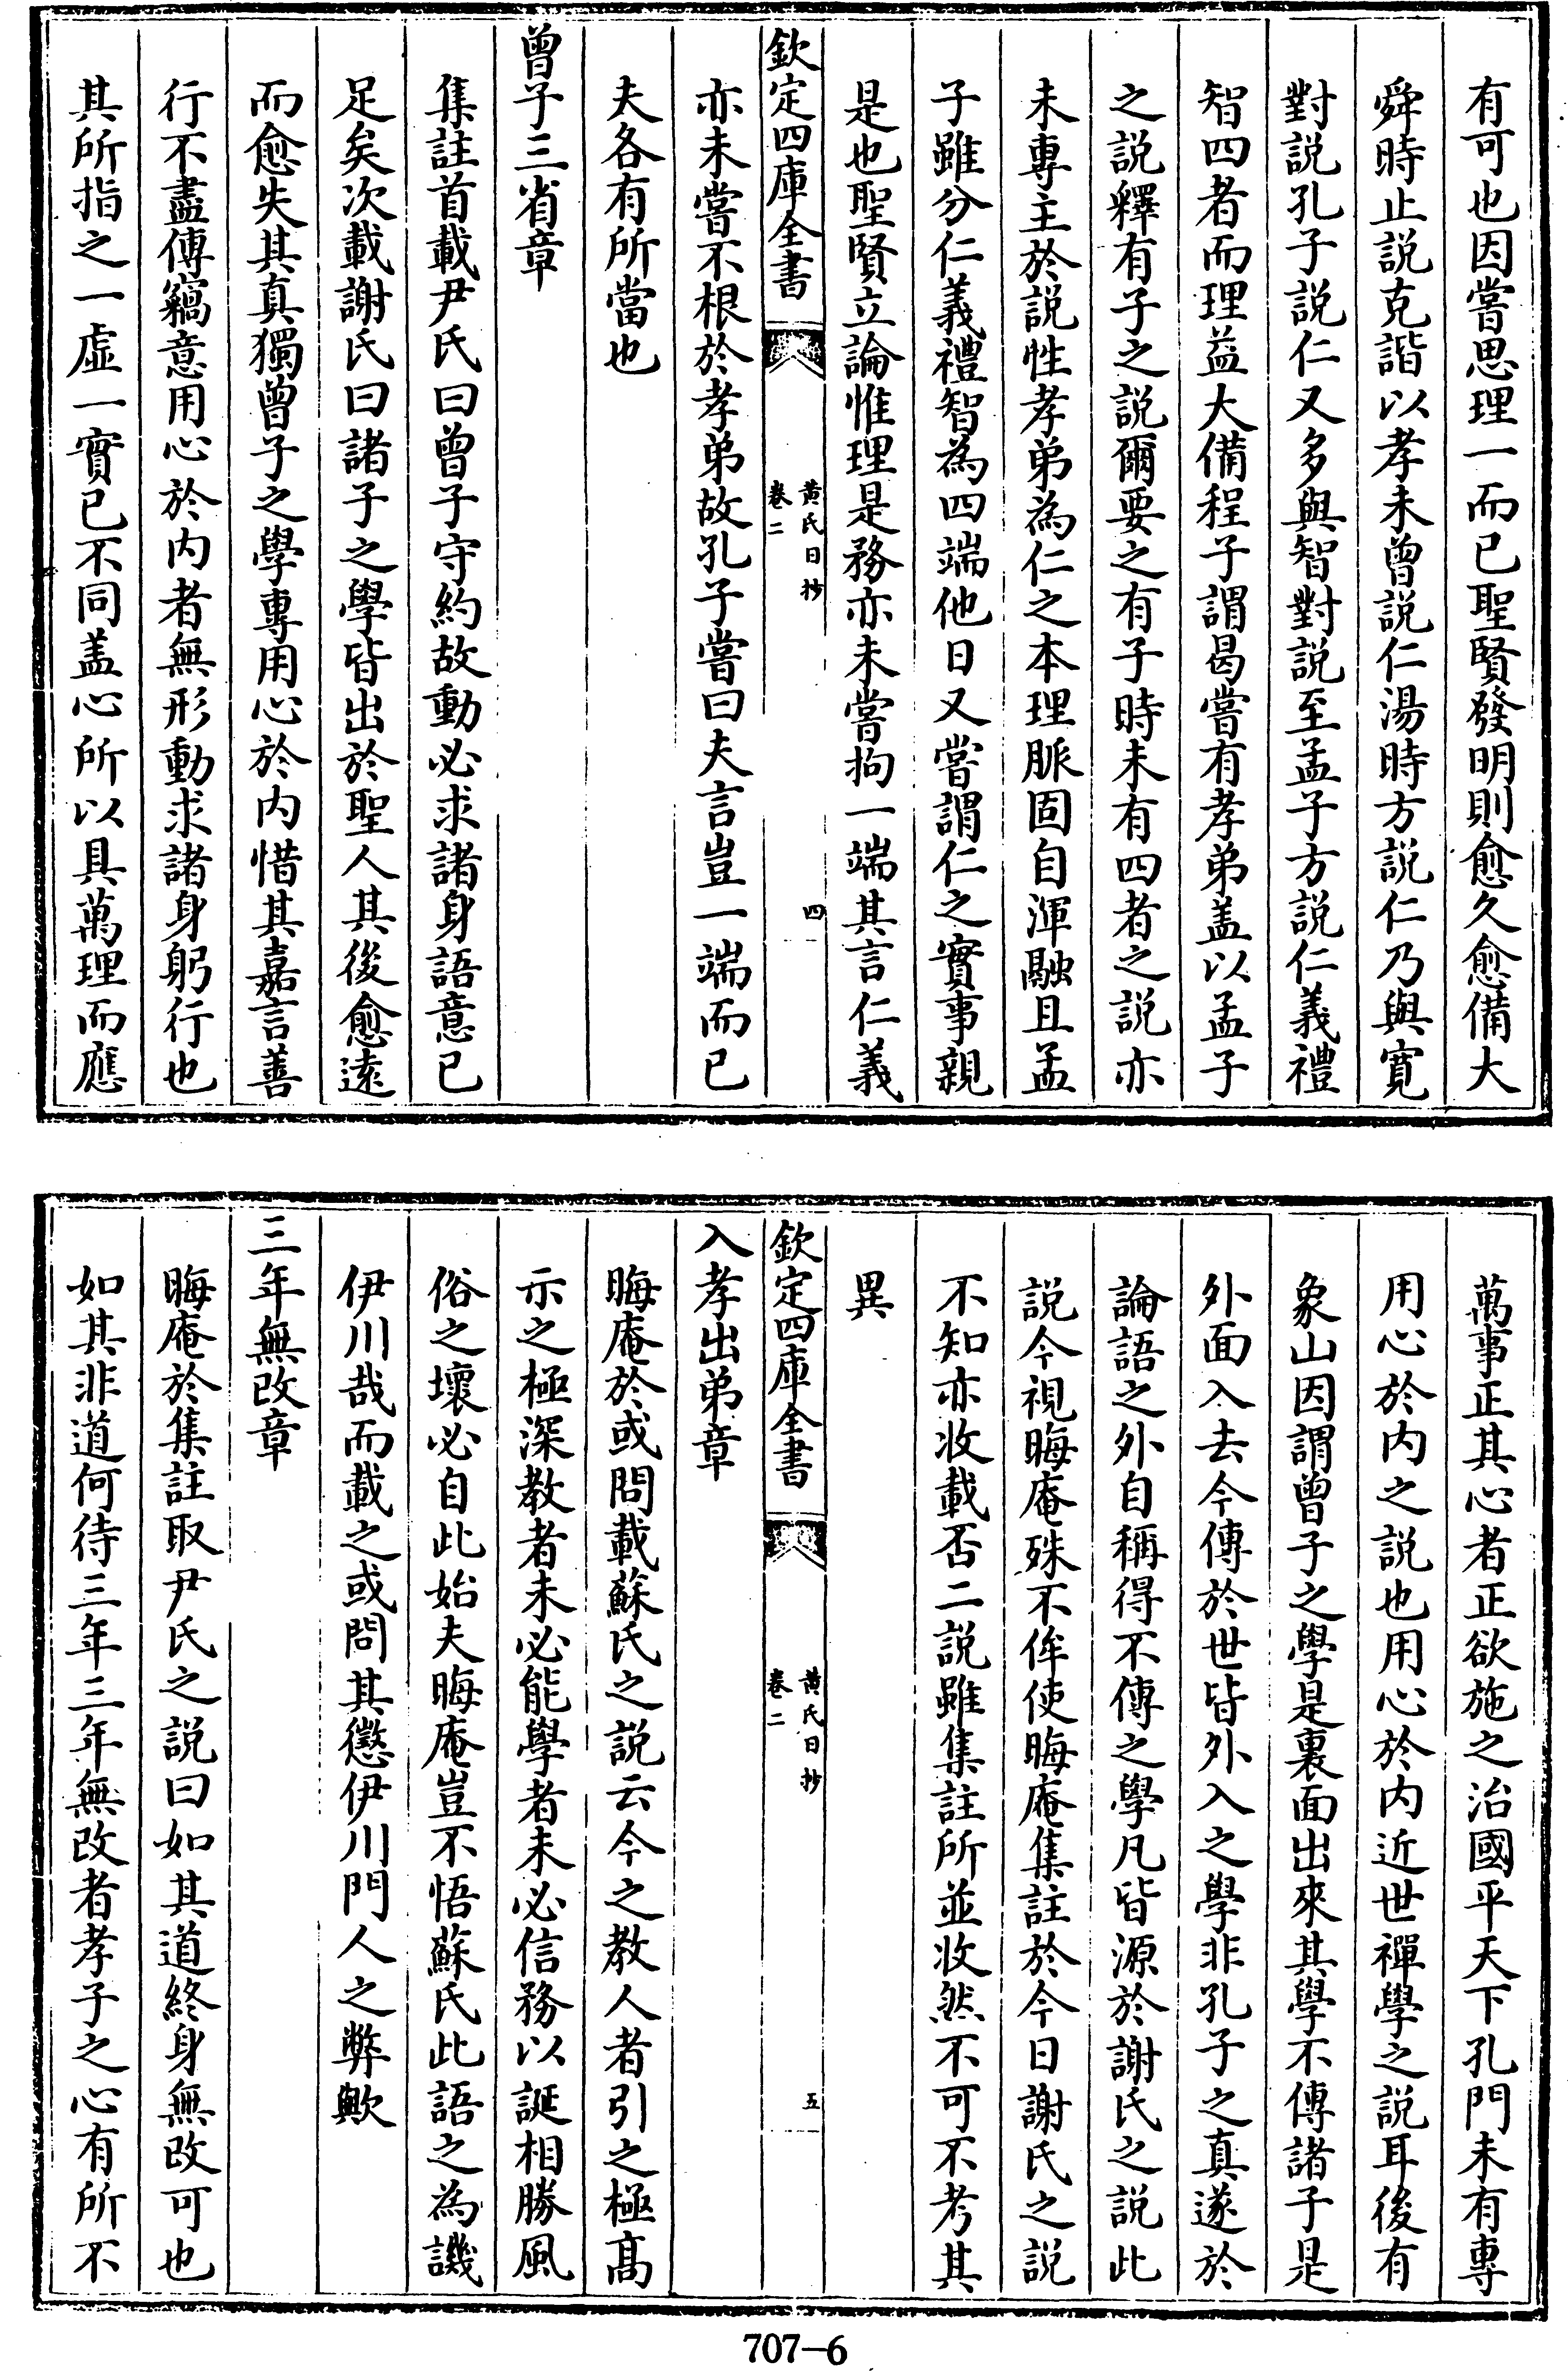 有可也因嘗思理一而已聖賢發明則愈久愈備大
舜時止説克諧以孝未曾説仁湯時方説仁乃與寛
對説孔子説仁又多與智對説至孟子方説仁義禮
智四者而理益大備程子謂曷嘗有孝弟盖以孟子
之説釋有子之説爾要之有子時未有四者之説亦
未專主於説性孝弟為仁之本理脈固自渾融且孟
子雖分仁義禮智為四端他日又嘗謂仁之實事親
是也聖賢立論惟理是務亦未嘗拘一端其言仁義
欽定四庫全書
黄氏日抄
卷二
四
亦未嘗不根於孝弟故孔子嘗曰夫言豈一端而已
夫各有所當也
曾子三省章
集註首載尹氏曰曾子守約故動必求諸身語意已
足矣次載謝氏曰諸子之學皆出於聖人其後愈逺
而愈失其真獨曾子之學專用心於内惜其嘉言善
行不盡傳竊意用心於内者無形動求諸身躬行也
其所指之一虚一實已不同盖心所以具萬理而應
萬事正其心者正欲施之治國平天下孔門未有專
用心於内之説也用心於内近世禪學之説耳後有
象山因謂曾子之學是裏面出來其學不傳諸子是
外面入去今傳於世皆外入之學非孔子之真遂於
論語之外自稱得不傳之學凡皆源於謝氏之説此
説今視晦庵殊不侔使晦庵集註於今日謝氏之説
不知亦收載否二説雖集註所並收然不可不考其
異
欽定四庫全書
黄氏日抄
卷二
五
入孝出弟章
晦庵於或問載蘇氏之説云今之教人者引之極髙
示之極深教者未必能學者未必信務以誕相勝風
俗之壞必自此始夫晦庵豈不悟蘇氏此語之為譏
伊川哉而載之或問其懲伊川門人之弊歟
三年無改章
晦庵於集註取尹氏之説曰如其道終身無改可也
如其非道何待三年三年無改者孝子之心有所不
707-6